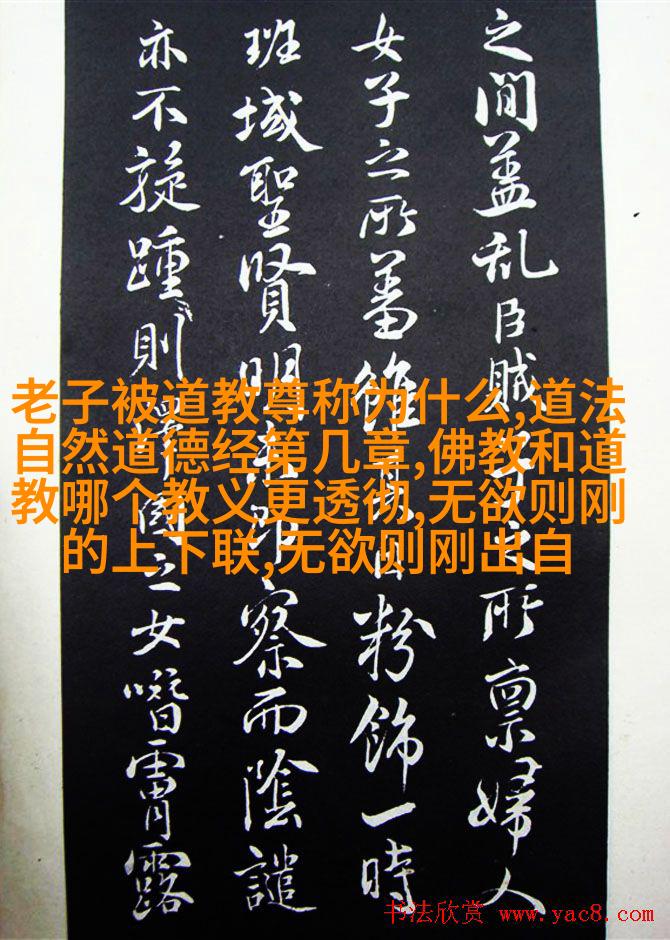 之間蓋乱臣賊所禀婦人
女子之所蓄雖目粉飾一時
班域聖賢明察而陰譴
亦不旋踵則之女霄露
老子被道教尊称为什么,道法
自然道德经第几章,佛教和道
教哪个教义更透彻,无欲则刚
的上下联,无欲则刚出自
书法欣赏 www.yac8.com